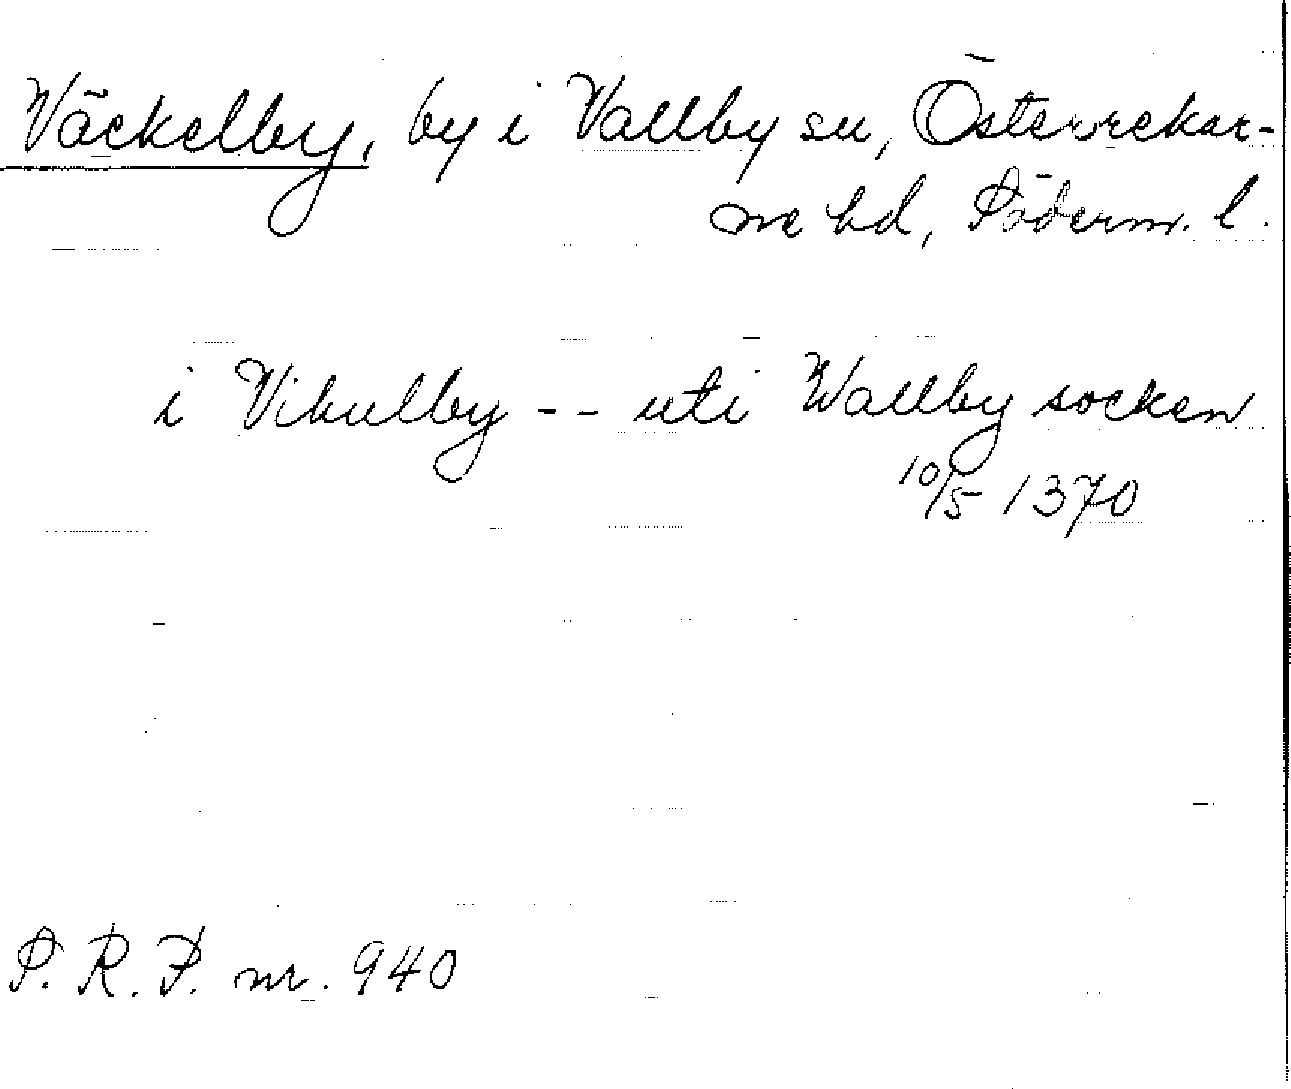 Väckelby, by i Vallby sn, Österrekar-
ne hd, Söderm. l.
i Vikulby -- uti Wallby socken
10/5 1370
S. R. P. nr. 940